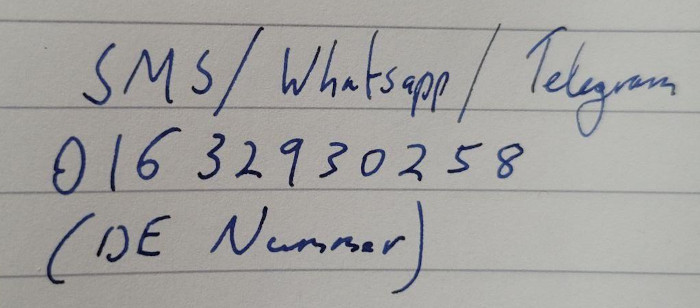 SMS/Whatsapp/Telegram
016 329 30258
(DE Nummer)